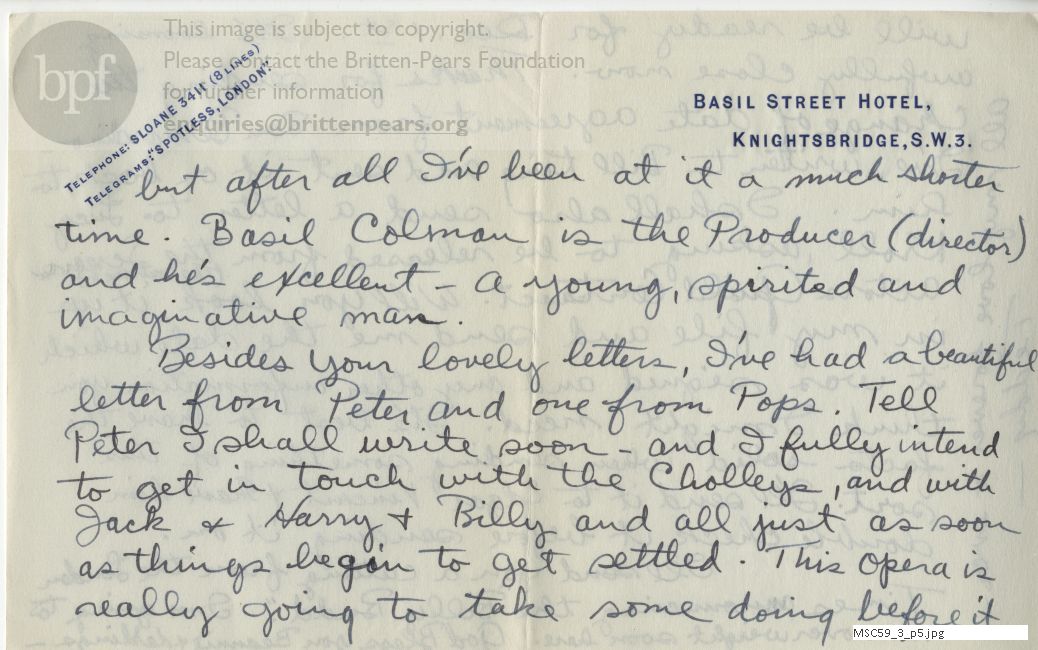 bpf
This image is subject to copyright.
Please contact the Britten-Pears Foundation
for further information
enquiries@brittenpears.org
TELEPHONE: SLOANE 3411 (8 LINES)
TELEGRAMS: "SPOTLESS, LONDON".
BASIL STREET HOTEL,
KNIGHTSBRIDGE, S.W.3.
but after all I've been at it a much shorter
time. Basil Colman is the Producer (director)
and he's excellent – a young, spirited and
imaginative man.
Besides your lovely letters, I've had a beautiful
letter from Peter and one from Pops. Tell
Peter I shall write soon – and I fully intend
to get in touch with the Cholleys, and with
Jack & Harry + Billy and all just as soon
as things begin to get settled. This Opera is
really going to take some doing before it
MSC59_3_p5.jpg